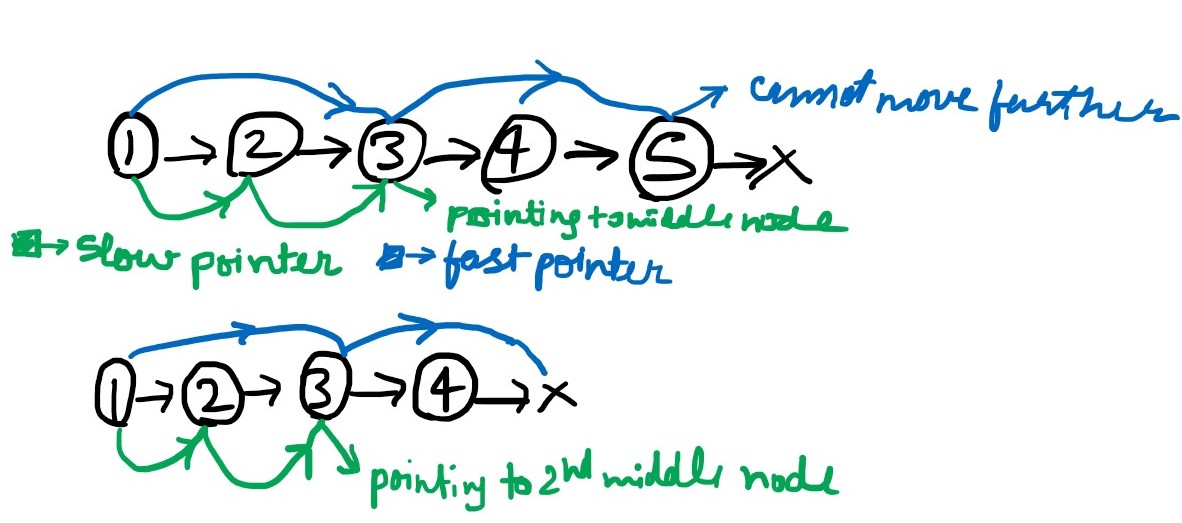 cannot move further
1 → 2 → 3 → 4 → 5 → X
pointing to middle node
→ slow pointer → fast pointer
1 → 2 → 3 → 4 → X
pointing to 2nd middle node